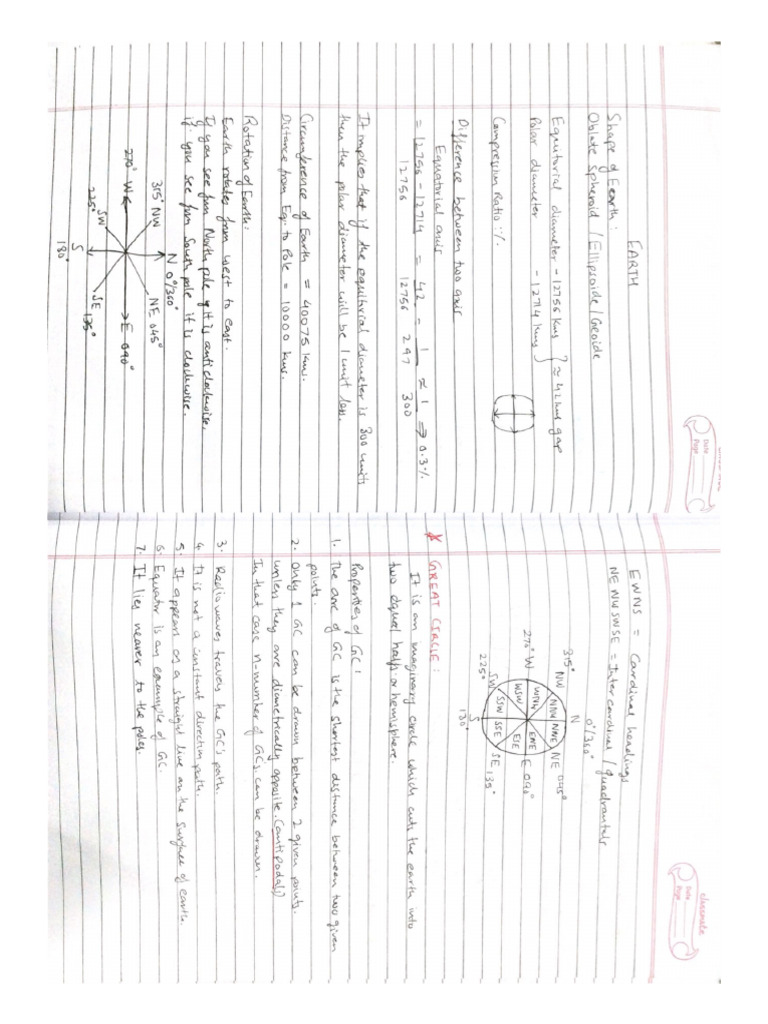 EARTH
Shape of Earth:
Oblate Spheroid / Ellipsoide / Geoide
Equitorial diameter - 12756 kms } ≈ 42 kms gap
Polar diameter - 12714 kms
Compression Ratio :%.
Difference between two axis
Equatorial axis
= 12756 - 12714 = 42 = 1 ≈ 1 ⇒ 0.3%
12756 12756 297 300
It implies that if the equitorial diameter is 300 units
then the polar diameter will be 1 unit less.
Circumference of Earth = 40075 kms.
Distance from Eq. to Pole = 10000 kms.
Rotation of Earth:
Earth rotates from west to east.
If you see from North pole it is anticlockwise.
if you see from South pole it is clockwise.
N 0°/360°
315° NW
NE 045°
270° W
E 090°
SW
225°
SE 135°
S
180°
Date
Page
EWNS = Cardinal headings
NE NW SW SE = Inter cardinal / quadrantals
0°/360°
N
315° NW
NE 045°
NNW
NNE
WNW
ENE
270° W
E 090°
WSW
ESE
SSW
SSE
SW
225°
SE 135°
S
180°
* GREAT CIRCLE:
It is an imaginary circle which cuts the earth into
two equal halfs or hemisphere.
Properties of GC:
1. The arc of GC is the shortest distance between two given
points.
2. Only 1 GC can be drawn between 2 given points.
unless they are diametrically opposite. (antipodals)
In that case n-number of GCs can be drawn.
3. Radio waves travels the GC's path.
4. It is not a constant direction path.
5. It appears as a straight line on the surface of earth.
6. Equator is an example of GC.
7. It lies nearer to the poles.
classmate
Date
Page